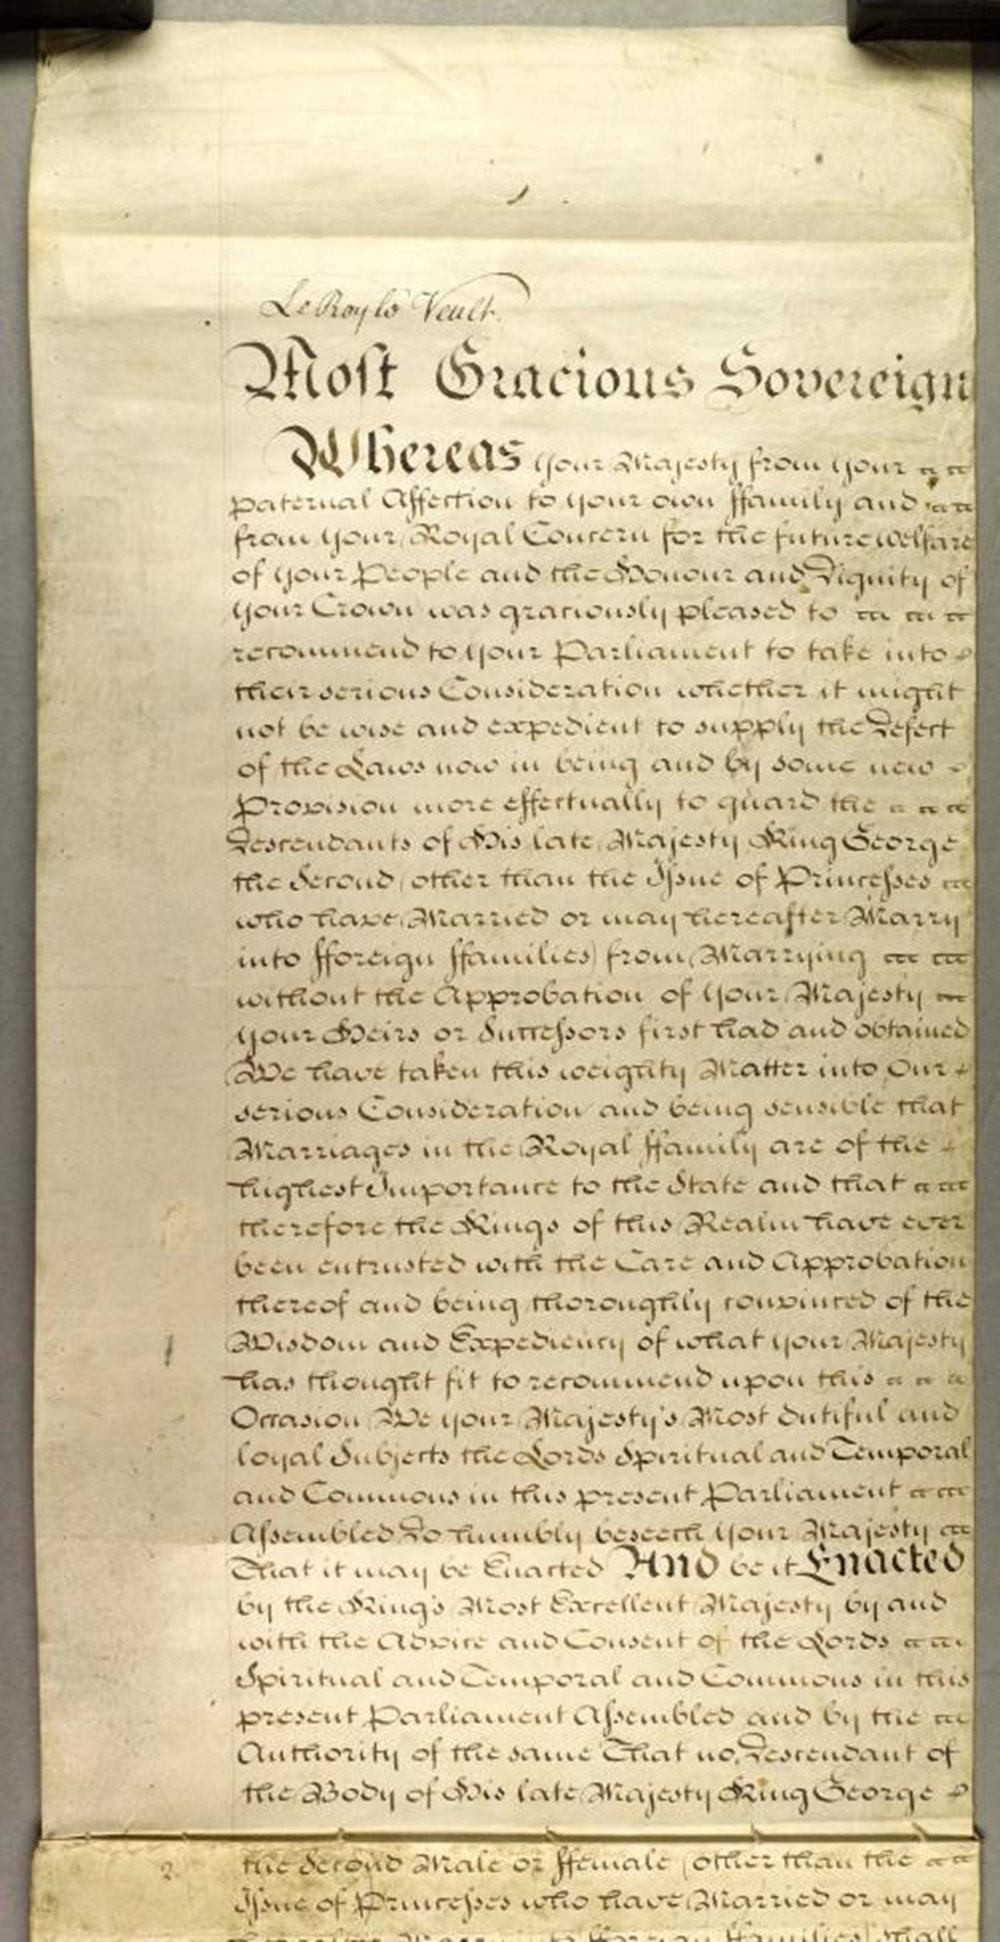 Le Roy le Veult.
Most Gracious Sovereign
Whereas your Majesty from your
paternal Affection to your own ffamily and
from your Royal Concern for the future welfare
of your People and the Honour and Dignity of
your Crown was graciously pleased to
recommend to your Parliament to take into
their serious Consideration whether it might
not be wise and expedient to supply the Defect
of the Laws now in being and by some new
Provision more effectually to guard the
Descendants of His late Majesty King George
the Second (other than the Issue of Princesses
who have Married or may hereafter Marry
into fforeign ffamilies) from Marrying
without the Approbation of your Majesty
your Heirs or Successors first had and obtained
We have taken this weighty Matter into Our
serious Consideration and being sensible that
Marriages in the Royal ffamily are of the
highest Importance to the State and that
therefore the Kings of this Realm have ever
been entrusted with the Care and Approbation
thereof and being thoroughly convinced of the
Wisdom and Expediency of what your Majesty
has thought fit to recommend upon this
Occasion We your Majesty's Most dutiful and
loyal Subjects the Lords Spiritual and Temporal
and Commons in this present Parliament
Assembled Do humbly beseech your Majesty
That it may be Enacted And be it Enacted
by the King's Most Excellent Majesty by and
with the Advice and Consent of the Lords
Spiritual and Temporal and Commons in this
present Parliament Assembled and by the
Authority of the same That no Descendant of
the Body of His late Majesty King George
2
the Second Male or ffemale (other than the
Issue of Princesses who have Married or may